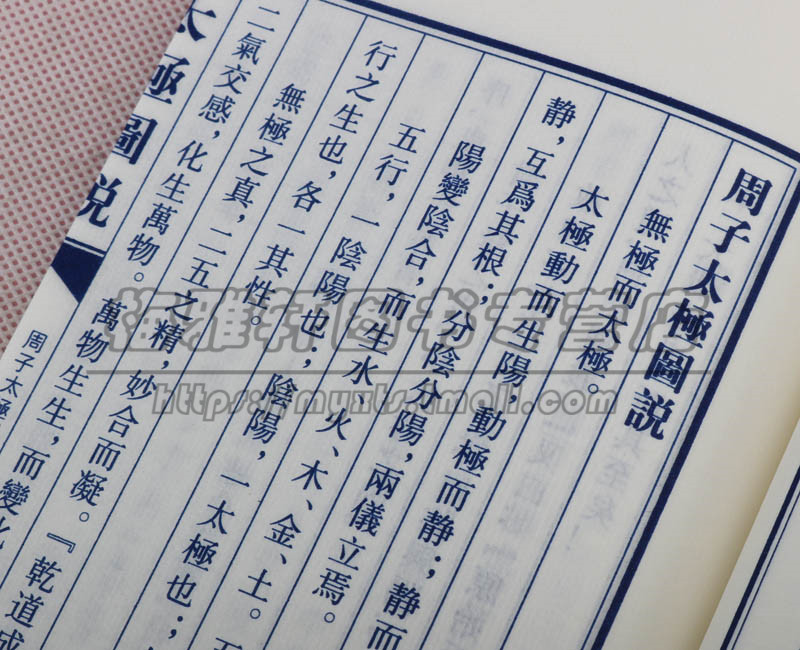 周子太極圖説
無極而太極。
太極動而生陽，動極而静；静而
静，互爲其根；分陰分陽，兩儀立焉。
陽變陰合，而生水、火、木、金、土。
五行，一陰陽也；陰陽，一太極也；
行之生也，各一其性。
無極之真，二五之精，妙合而凝。『乾道成
二氣交感，化生萬物。萬物生生，而變化
太極圖説
周子太極
海雅轩图书专营店